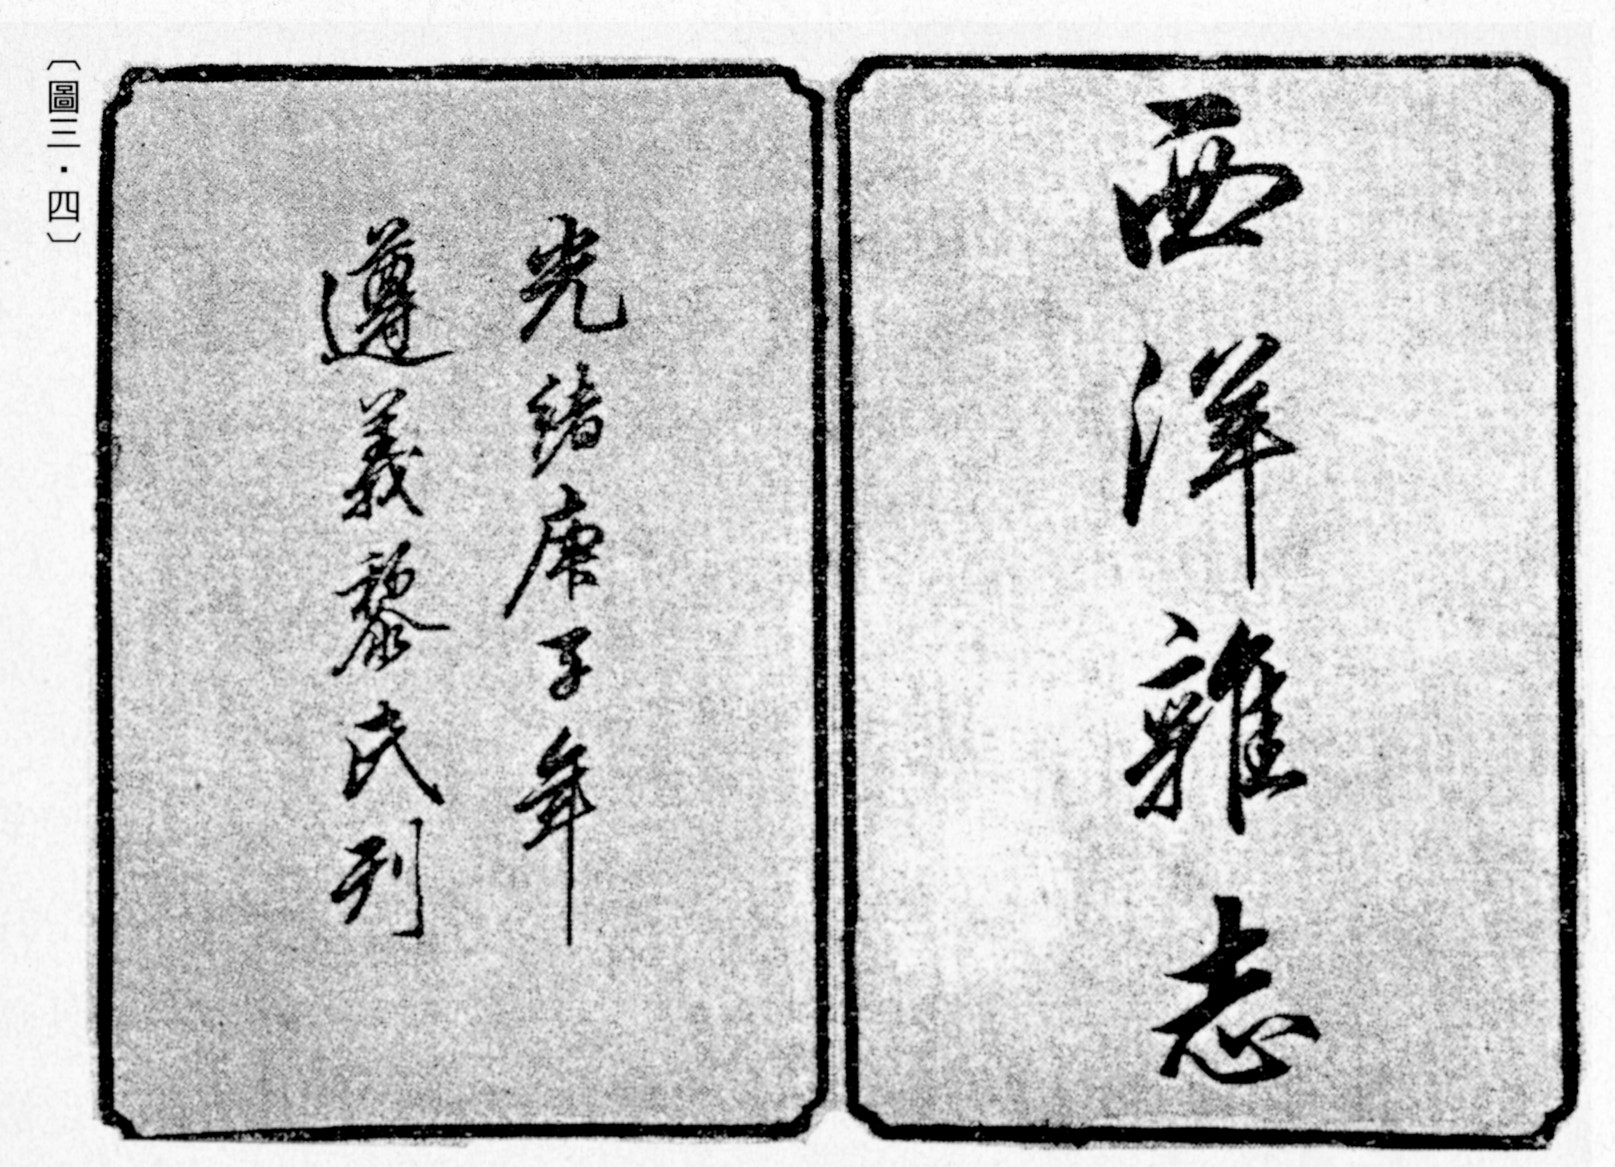 西洋雜志
光緒庚子年
遵義黎氏刊
〔圖三·四〕